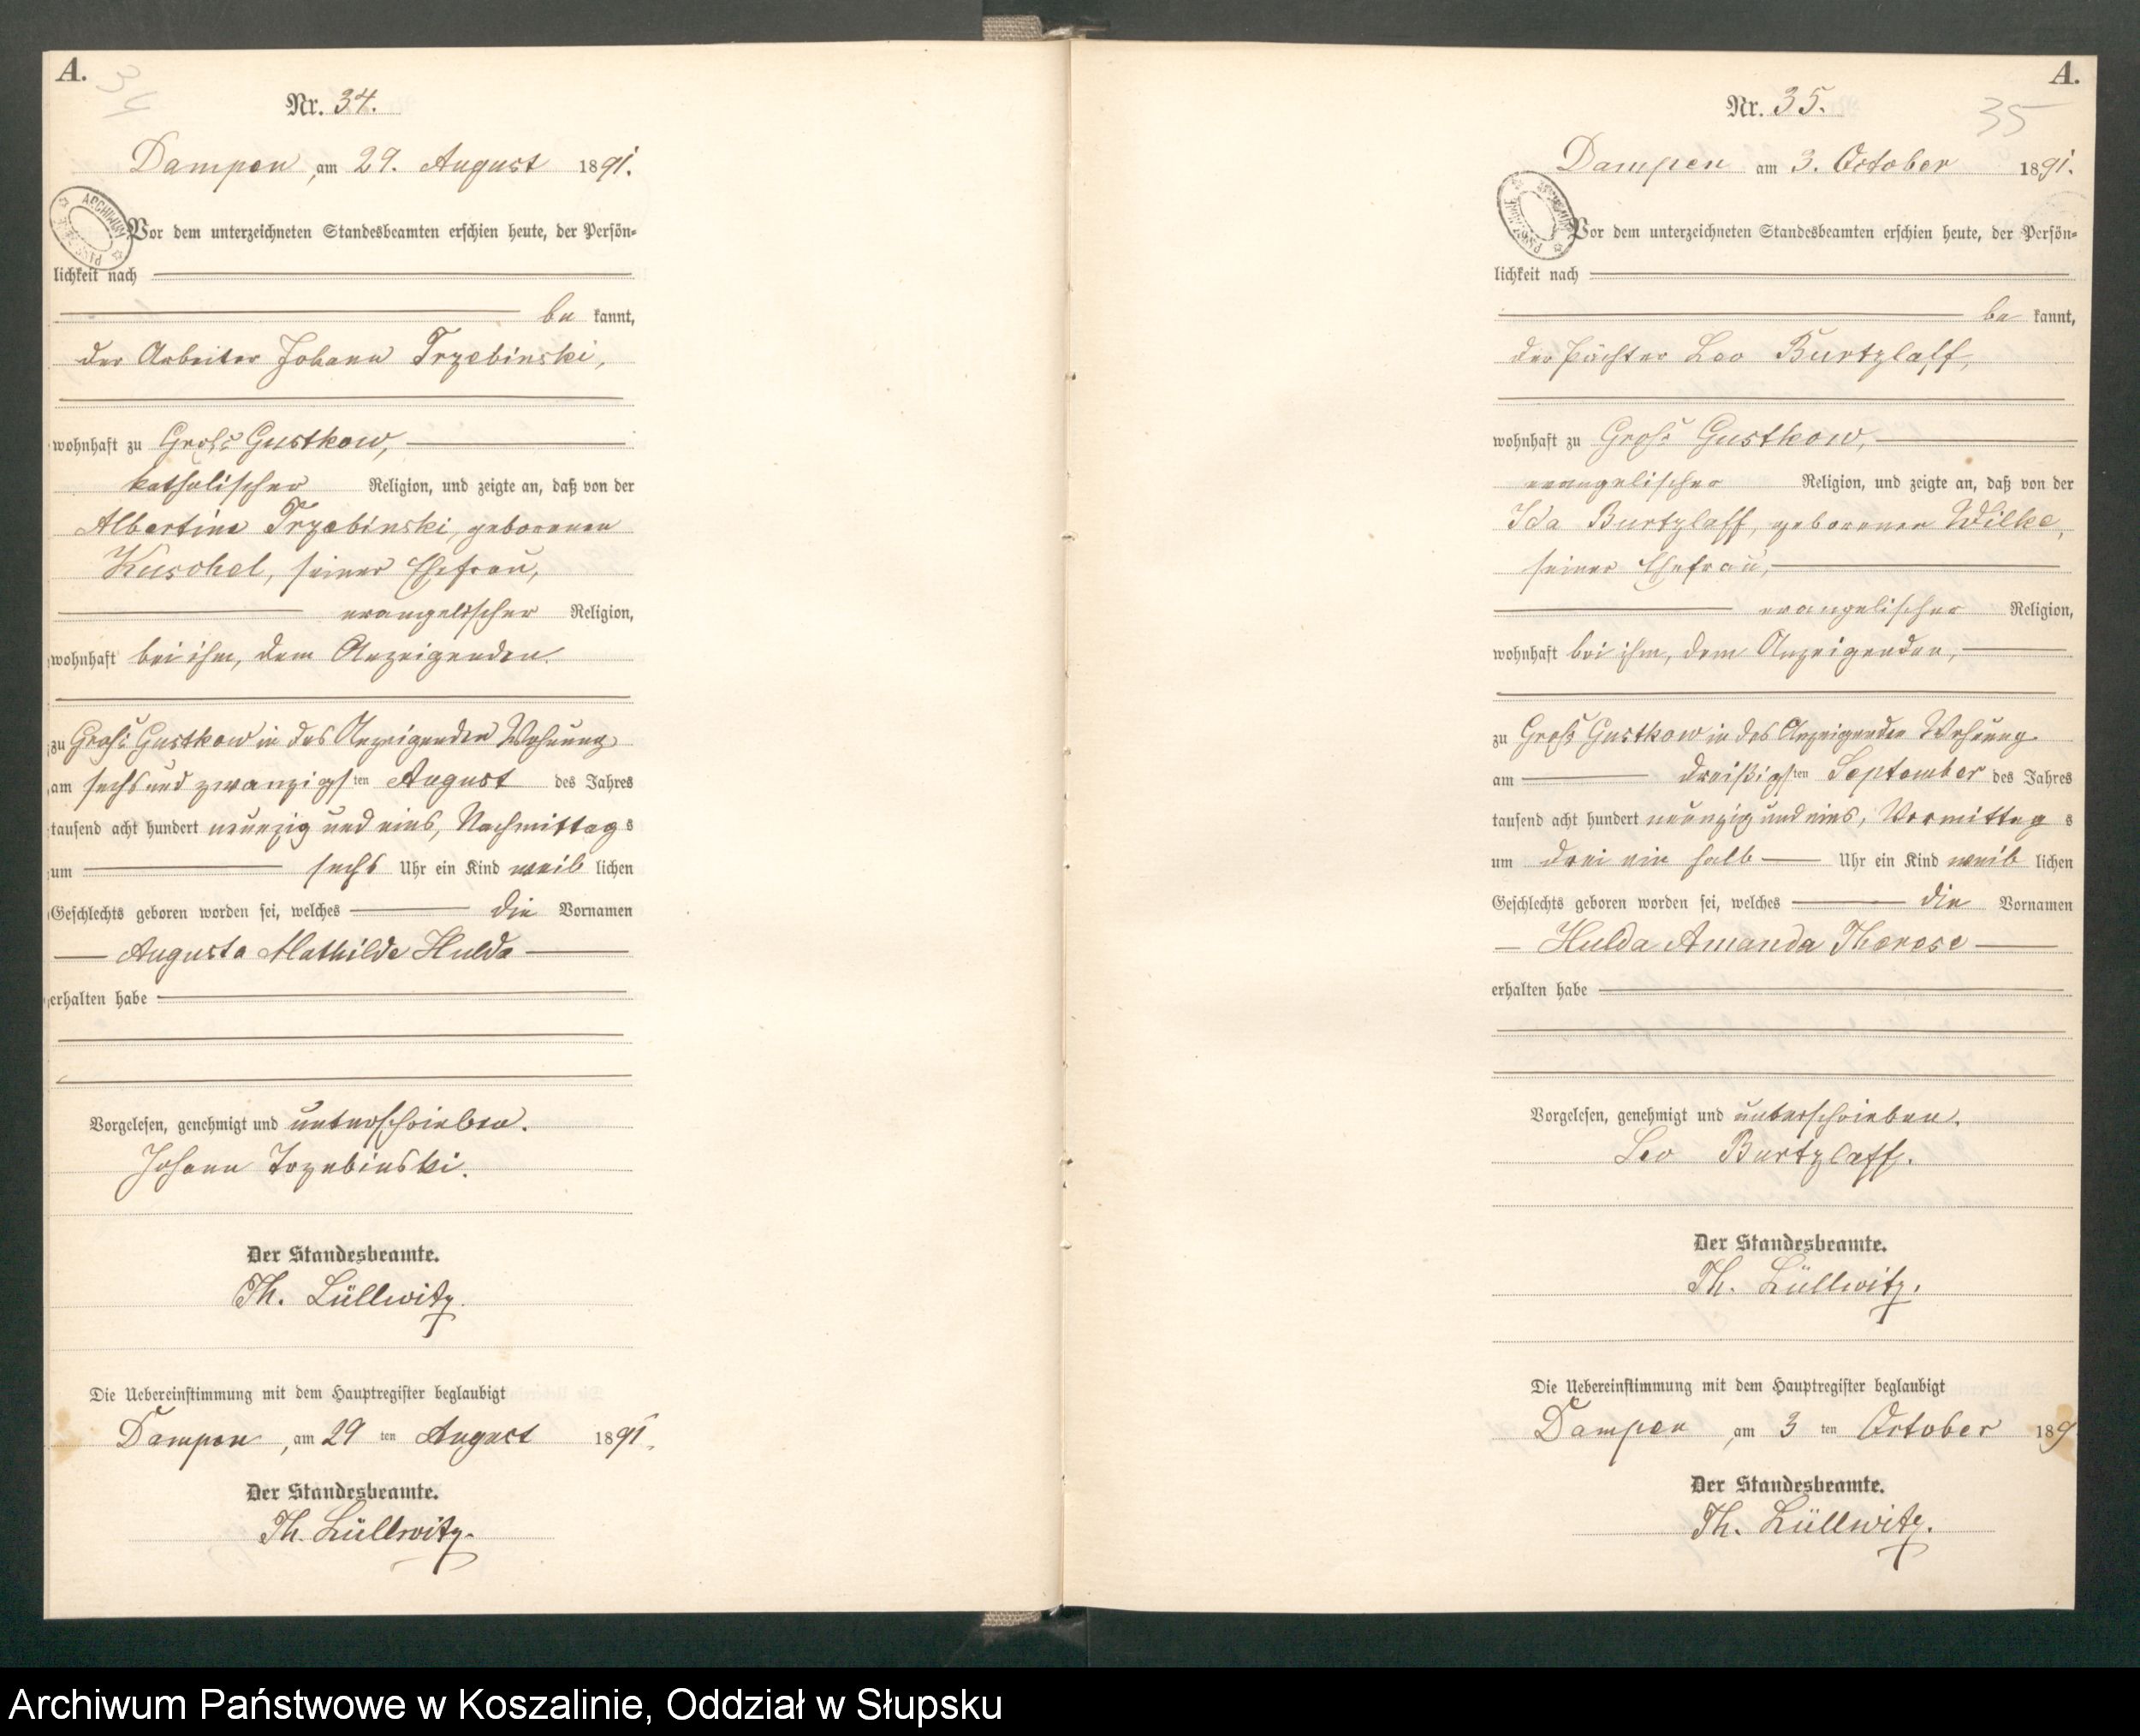 A.
34
Nr. 34.
Dampen, am 29. August 1891.
Vor dem unterzeichneten Standesbeamten erschien heute, der Persön-
lichkeit nach
be kannt,
der Arbeiter Johann Trzebinski,
wohnhaft zu Groß Gustkow,
katholischer Religion, und zeigte an, daß von der
Albertine Trzebinski, geborenen
Kuschel, seiner Ehefrau,
evangelischer Religion,
wohnhaft bei ihm, dem Anzeigenden.
zu Groß Gustkow in des Anzeigenden Wohnung
am sechs und zwanzigsten August des Jahres
tausend acht hundert neunzig und eins, Nachmittags
um sechs Uhr ein Kind weiblichen
Geschlechts geboren worden sei, welches die Vornamen
Augusta Mathilde Hulda
erhalten habe
Vorgelesen, genehmigt und unterschrieben.
Johann Trzebinski.
Der Standesbeamte.
Th. Lüllwitz.
Die Uebereinstimmung mit dem Hauptregister beglaubigt
Dampen, am 29 ten August 1891.
Der Standesbeamte.
Th. Lüllwitz.
A.
35
Nr. 35.
Dampen am 3. October 1891.
Vor dem unterzeichneten Standesbeamten erschien heute, der Persön-
lichkeit nach
be kannt,
der Pächter Leo Burtzlaff,
wohnhaft zu Groß Gustkow,
evangelischer Religion, und zeigte an, daß von der
Ida Burtzlaff, geborenen Wilke,
seiner Ehefrau,
evangelischer Religion,
wohnhaft bei ihm, dem Anzeigenden,
zu Groß Gustkow in des Anzeigenden Wohnung
am dreißigsten September des Jahres
tausend acht hundert neunzig und eins, Vormittags
um drei ein halb Uhr ein Kind weiblichen
Geschlechts geboren worden sei, welches die Vornamen
Hulda Amanda Therese
erhalten habe
Vorgelesen, genehmigt und unterschrieben.
Leo Burtzlaff.
Der Standesbeamte.
Th. Lüllwitz.
Die Uebereinstimmung mit dem Hauptregister beglaubigt
Dampen, am 3 ten October 189
Der Standesbeamte.
Th. Lüllwitz.
Archiwum Państwowe w Koszalinie, Oddział w Słupsku